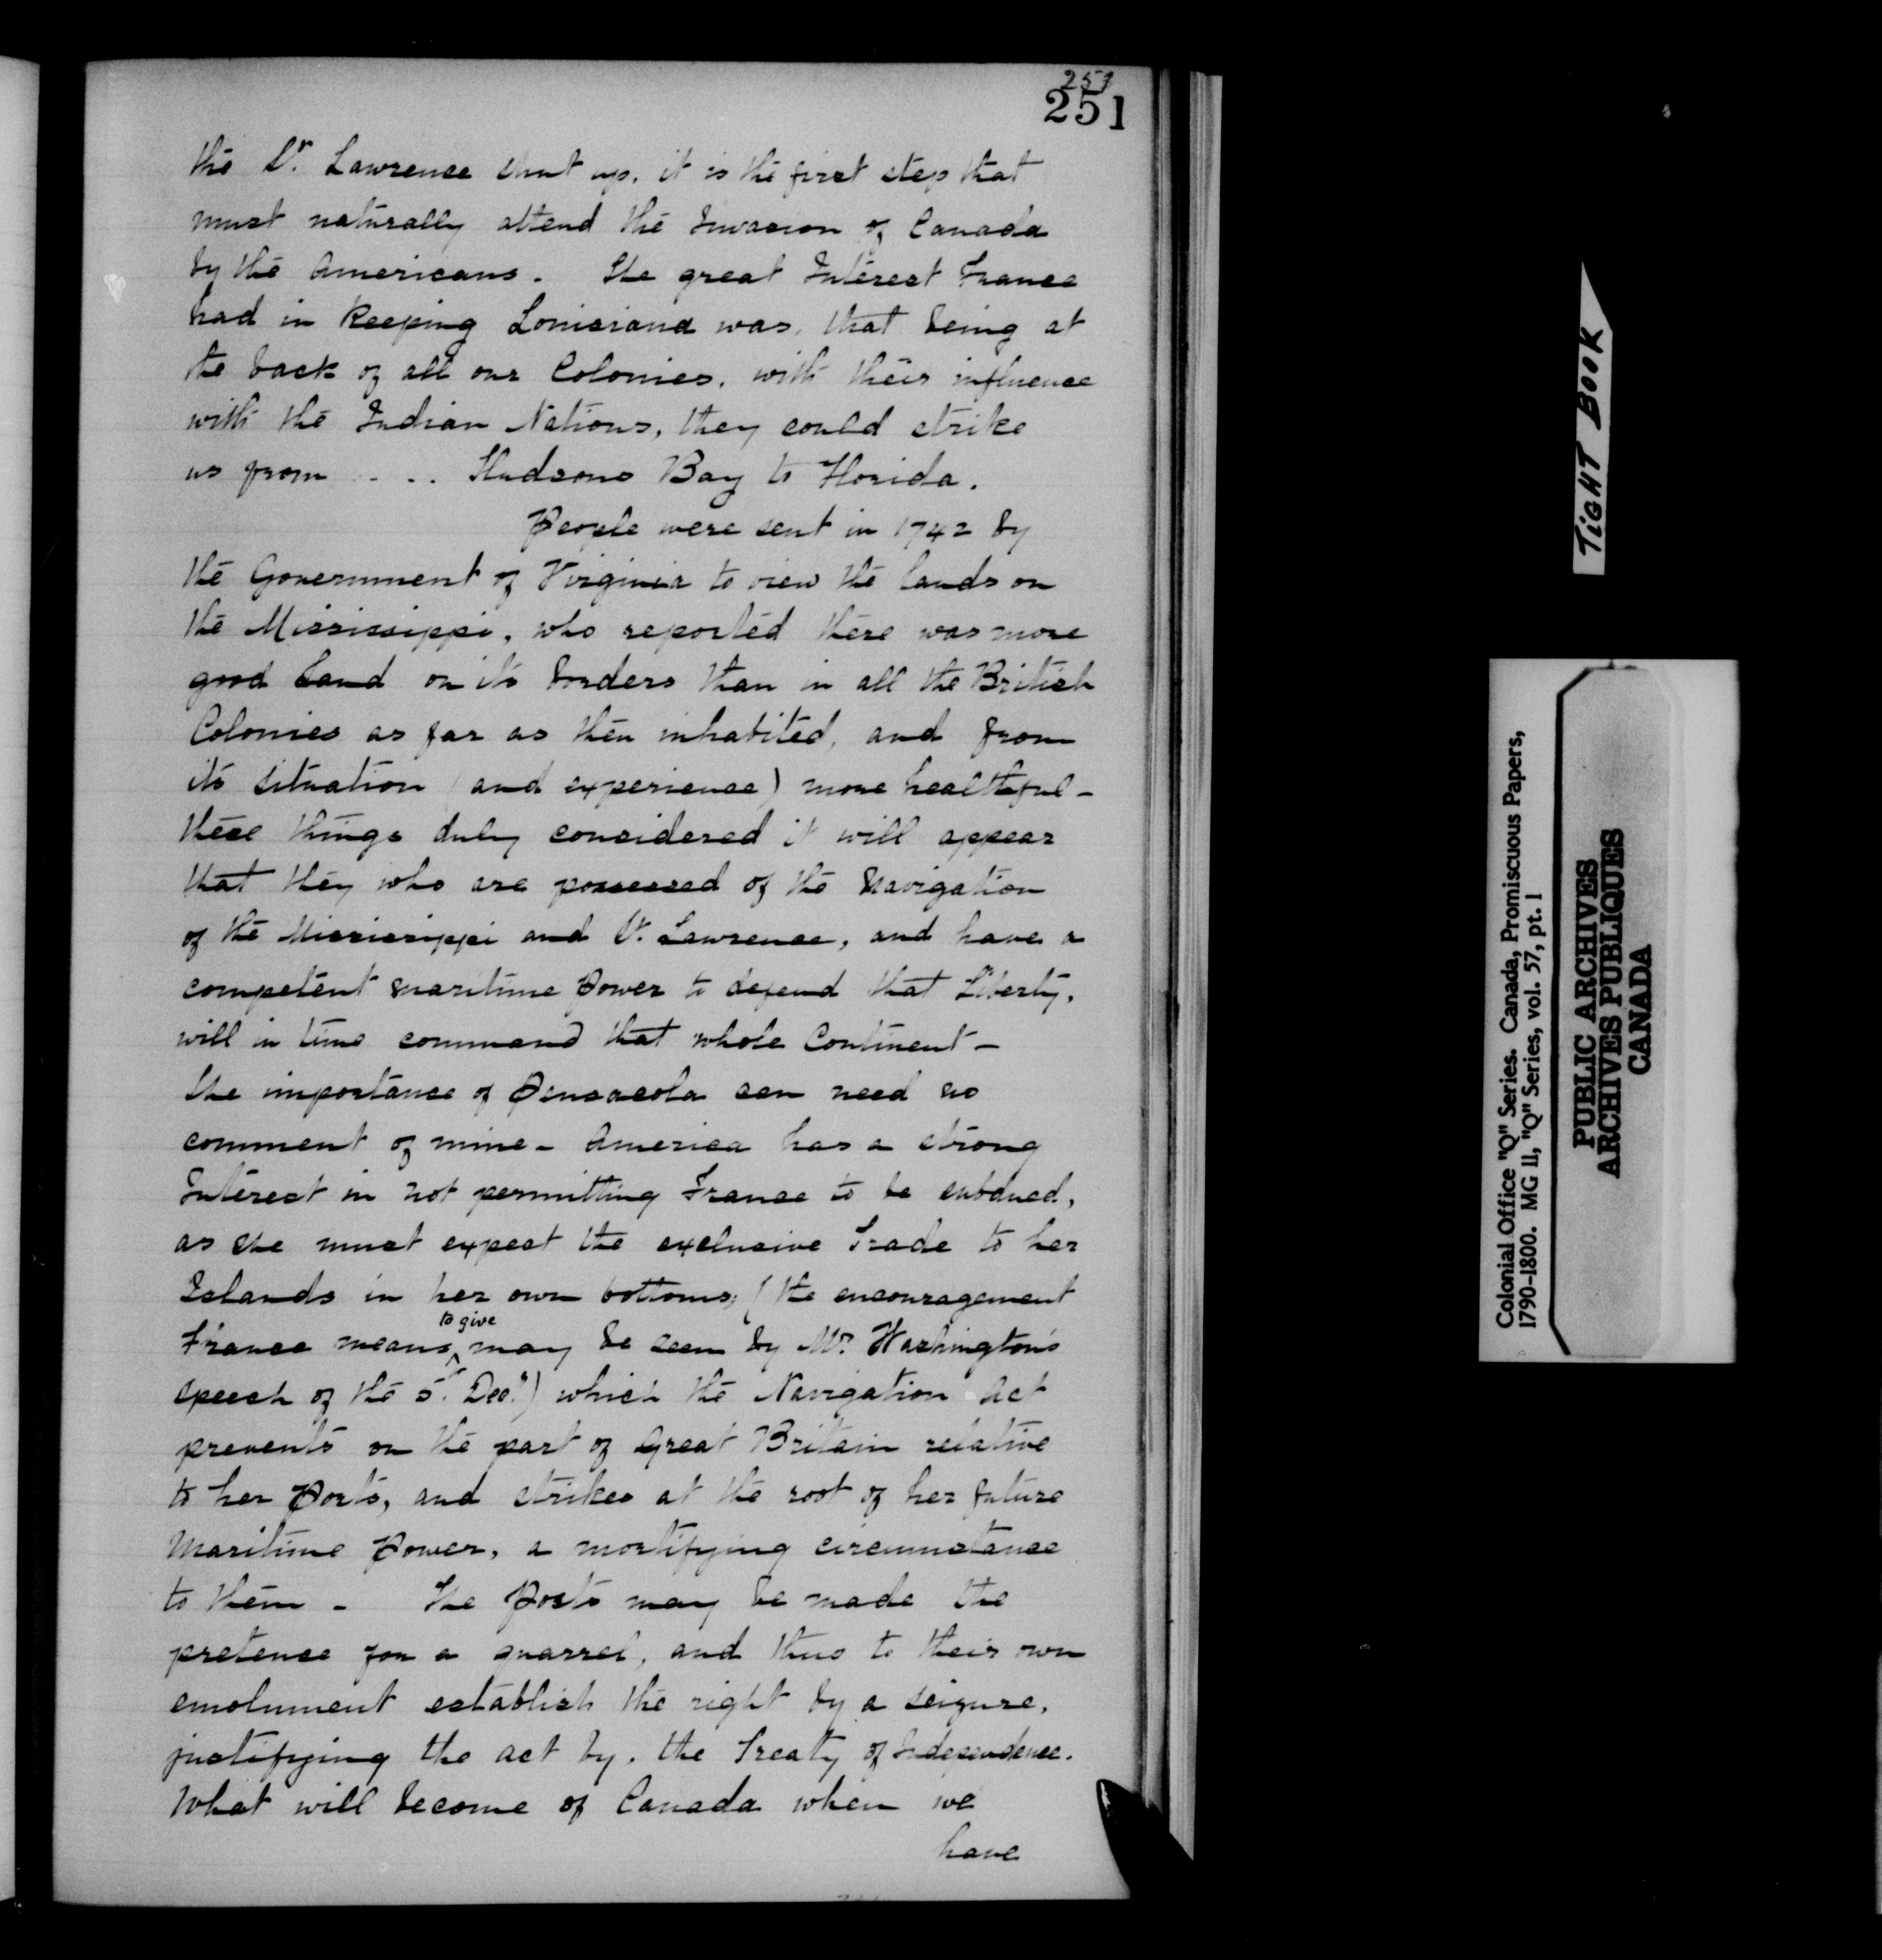 251
251
the St. Lawrence shut up, it is the first step that
must naturally attend the Invasion of Canada
by the Americans. The great Interest France
had in keeping Louisiana was, that being at
the back of all our Colonies, with their influence
with the Indian Nations, they could strike
us from . . . Hudsons Bay to Florida.
People were sent in 1742 by
the Government of Virginia to view the lands on
the Mississippi, who reported there was more
good Land on its borders than in all the British
Colonies as far as then inhabited, and from
its situation (and experience) more healthful -
these things duly considered it will appear
that they who are possessed of the Navigation
of the Mississippi and St. Lawrence, and have a
competent maritime Power to defend that Liberty,
will in time command that whole Continent -
the importance of Pensacola can need no
comment of mine - America has a strong
Interest in not permitting France to be subdued,
as she must expect the exclusive Trade to her
Islands in her own bottoms, (the encouragement
France means to give may be seen by Mr. Washington's
speech of the 5th. Decr.) which the Navigation Act
prevents on the part of Great Britain relative
to her Ports, and strikes at the root of her future
Maritime Power, a mortifying circumstance
to them - The Posts may be made the
pretence for a quarrel, and thus to their own
emolument establish the right by a seizure,
justifying the act by, the Treaty of Independence.
What will become of Canada when we
have
TIGHT BOOK
Colonial Office "Q" Series. Canada, Promiscuous Papers,
1790-1800. MG 11, "Q" Series, vol. 57, pt. 1
PUBLIC ARCHIVES
ARCHIVES PUBLIQUES
CANADA